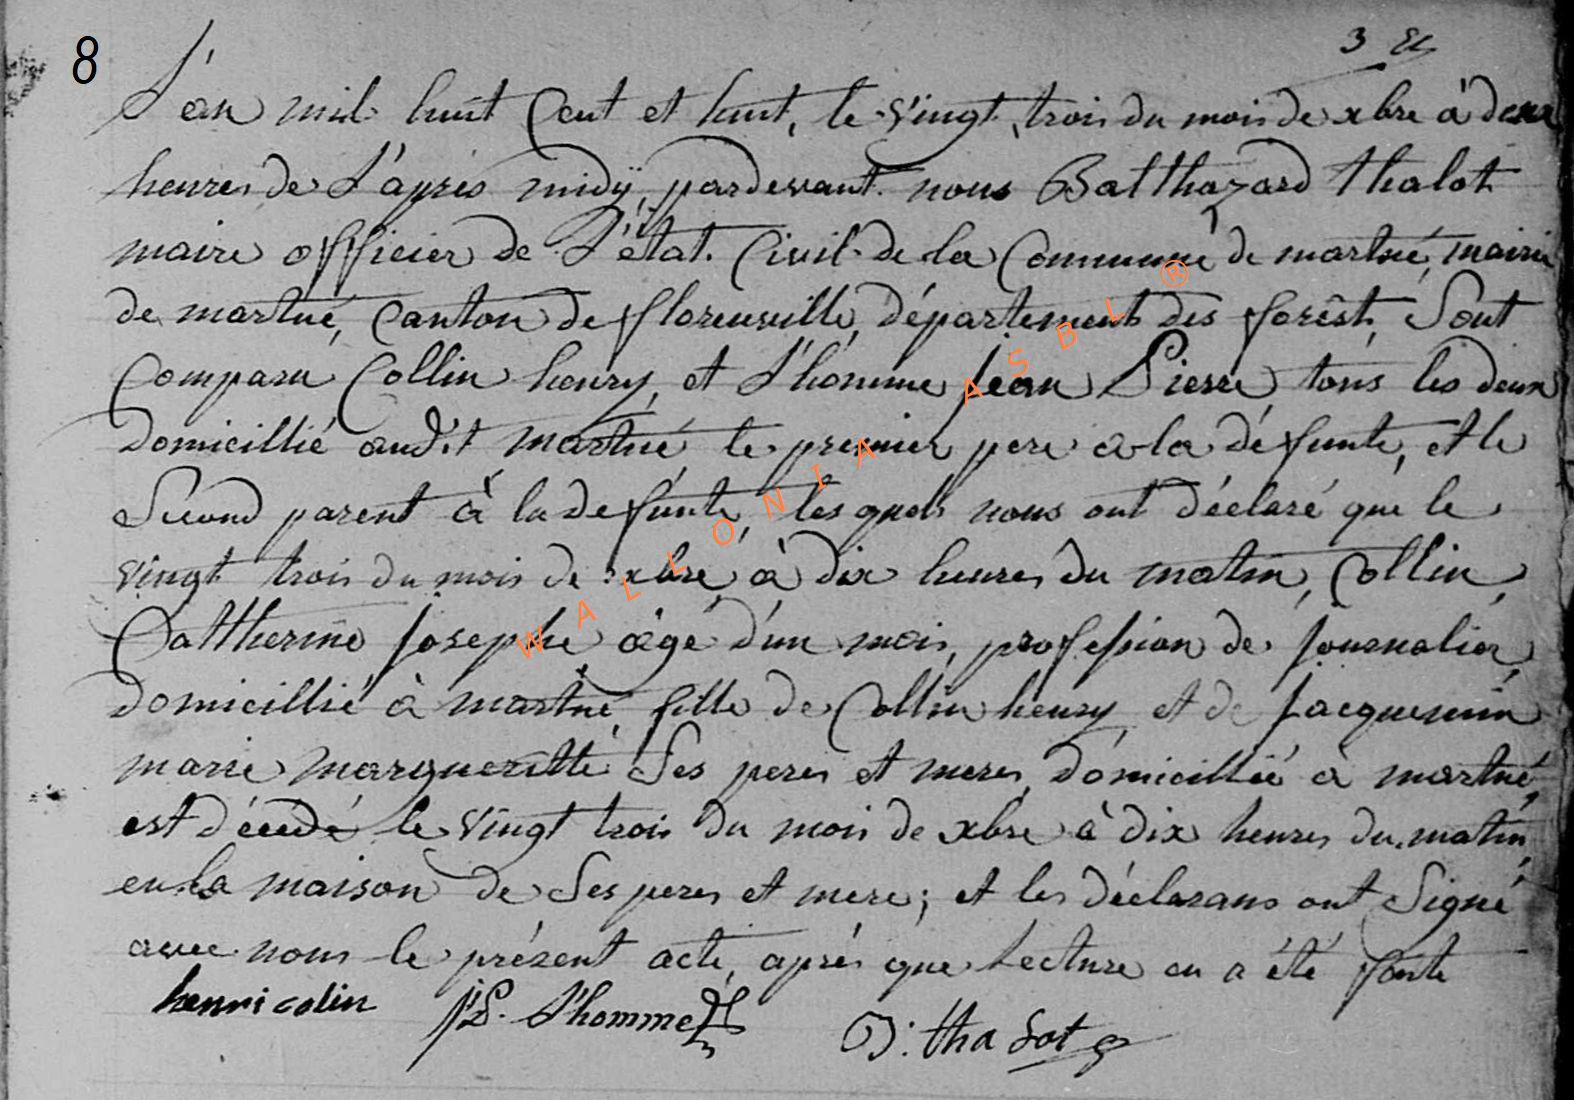 8
3 
L'an mil huit Cent et huit, le vingt trois du mois de xbre à deux
heures de L'après midÿ, pardevant nous Balthazard thalot
maire officier de L'état Civil de la Commune de martué, mairie
de martué, Canton de florenville, département des forêst, Sont
Comparu Collin henry, et L'homme Jean Pierre tous les deux
domicillié audit martué le premier pere a la défunte, et le
Second parent à la defunte, les quels nous ont déclaré que le
vingt trois du mois de xbre à dix heures du matin, Collin
Catherine Josephe agé d'un mois, profession de journalier,
domicillié à martué fille de Collin henry et de Jacquemin
marie margueritte Ses peres et meres domicilliée a martué,
est décedé le vingt trois du mois de xbre à dix heures du matin,
en la maison de Ses peres et mere; et les déclarans ont Signé
avec nous le présent acte, après que Lecture en a été faite
henri colin J.P. L'homme B. thalot
WALLONIA ASBL ®